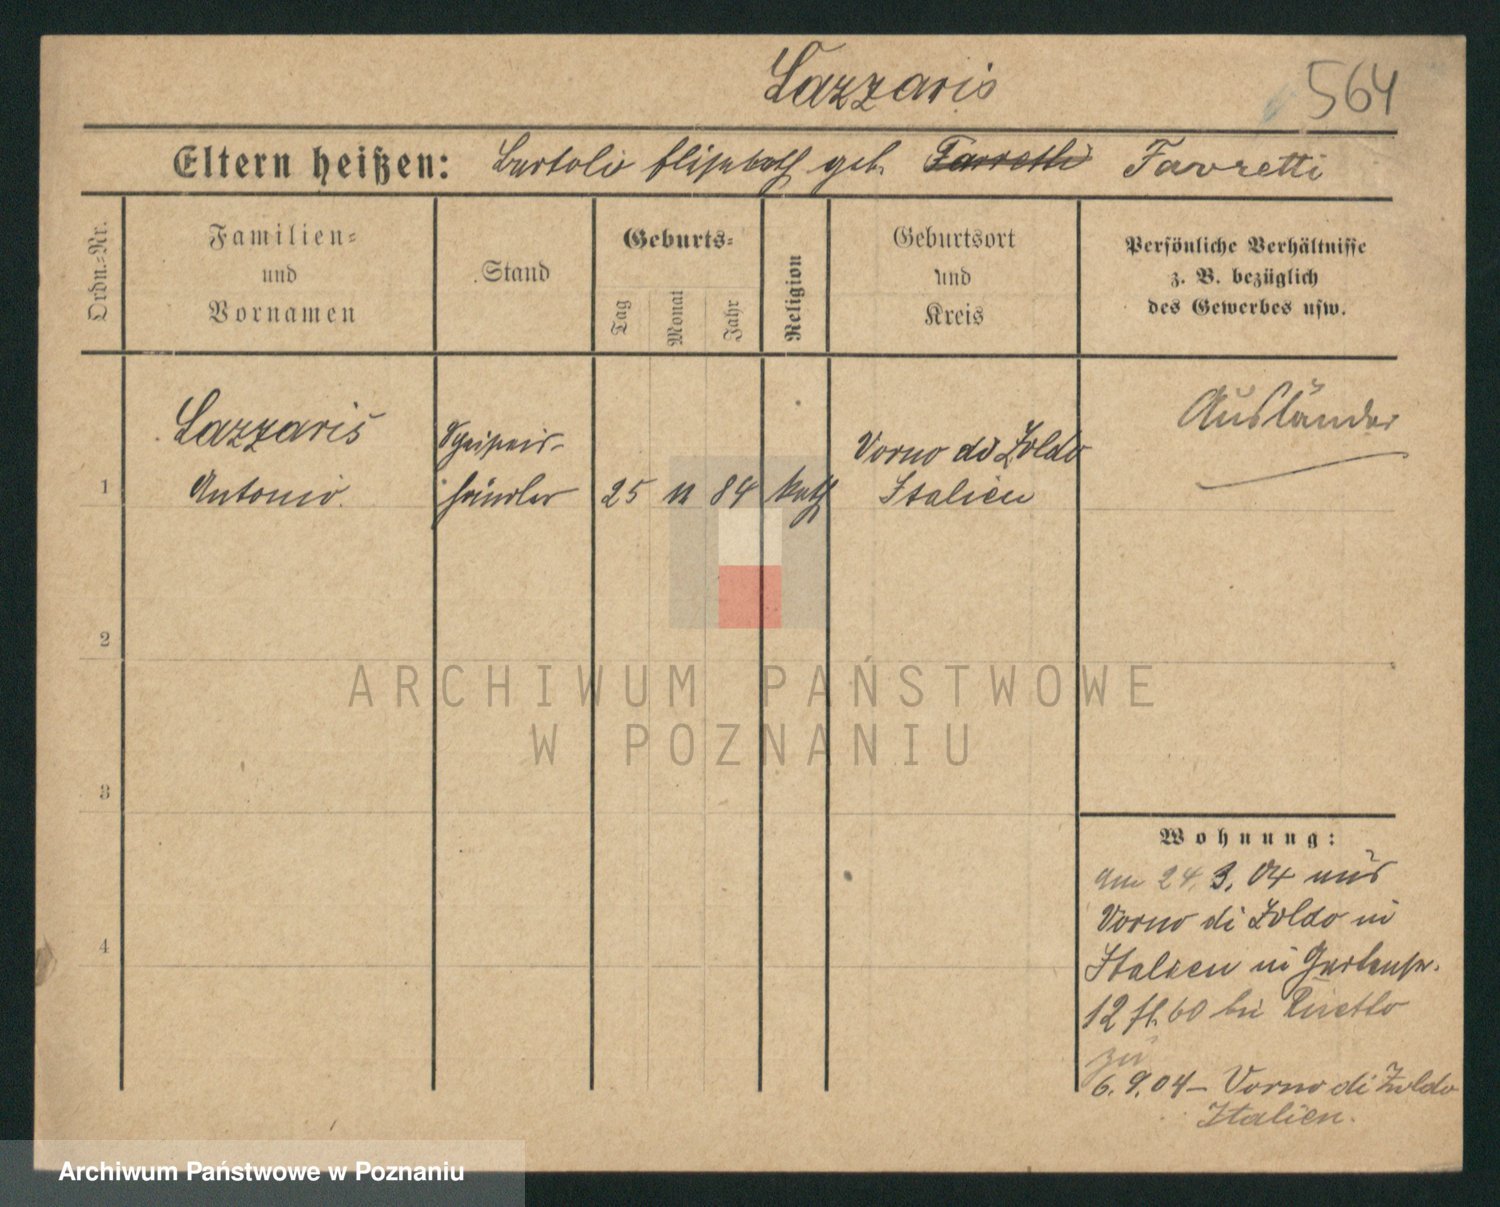 Lazzaris 564
Eltern heißen: Bartolio Elisabeth geb. Favretti Favretti
Ordn.-Nr.
Familien-
und
Vornamen
Stand
Geburts-
Tag
Monat
Jahr
Religion
Geburtsort
und
Kreis
Persönliche Verhältnisse
z. B. bezüglich
des Gewerbes usw.
Lazzaris
Antonio.
händler
1
25 11 84 kath
Vorno di Zoldo
Italien
Ausländer
2
3
4
Wohnung:
am 24. 3. 04 aus
Vorno di Zoldo in
Italien in Gartenstr.
12 bei
zu
6. 9. 04 – Vorno di Zoldo
Italien.
ARCHIWUM PAŃSTWOWE
W POZNANIU
Archiwum Państwowe w Poznaniu